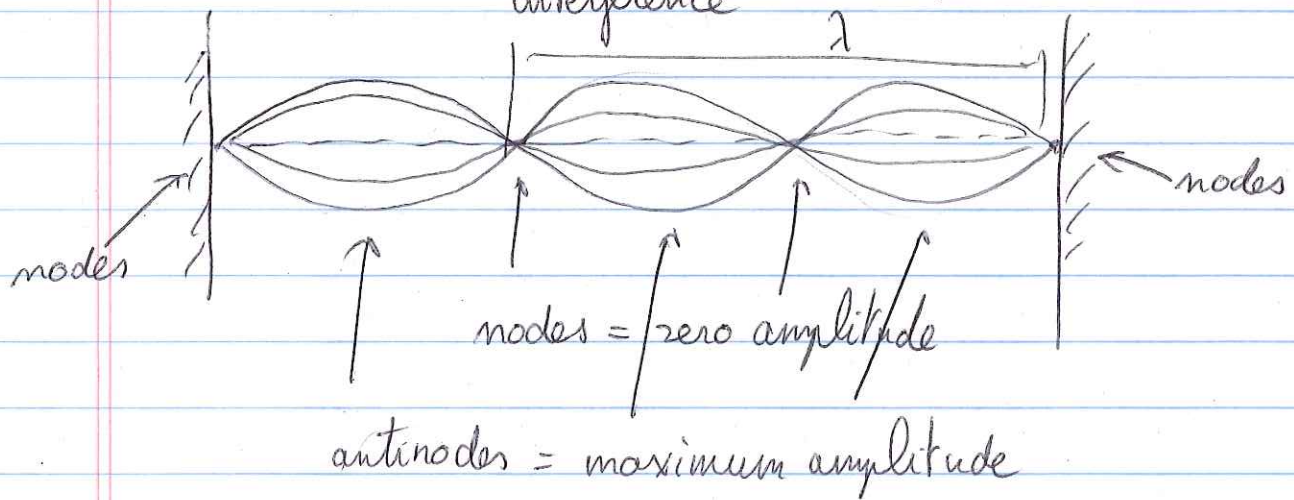 interference
λ
nodes
nodes
nodes = zero amplitude
antinodes = maximum amplitude